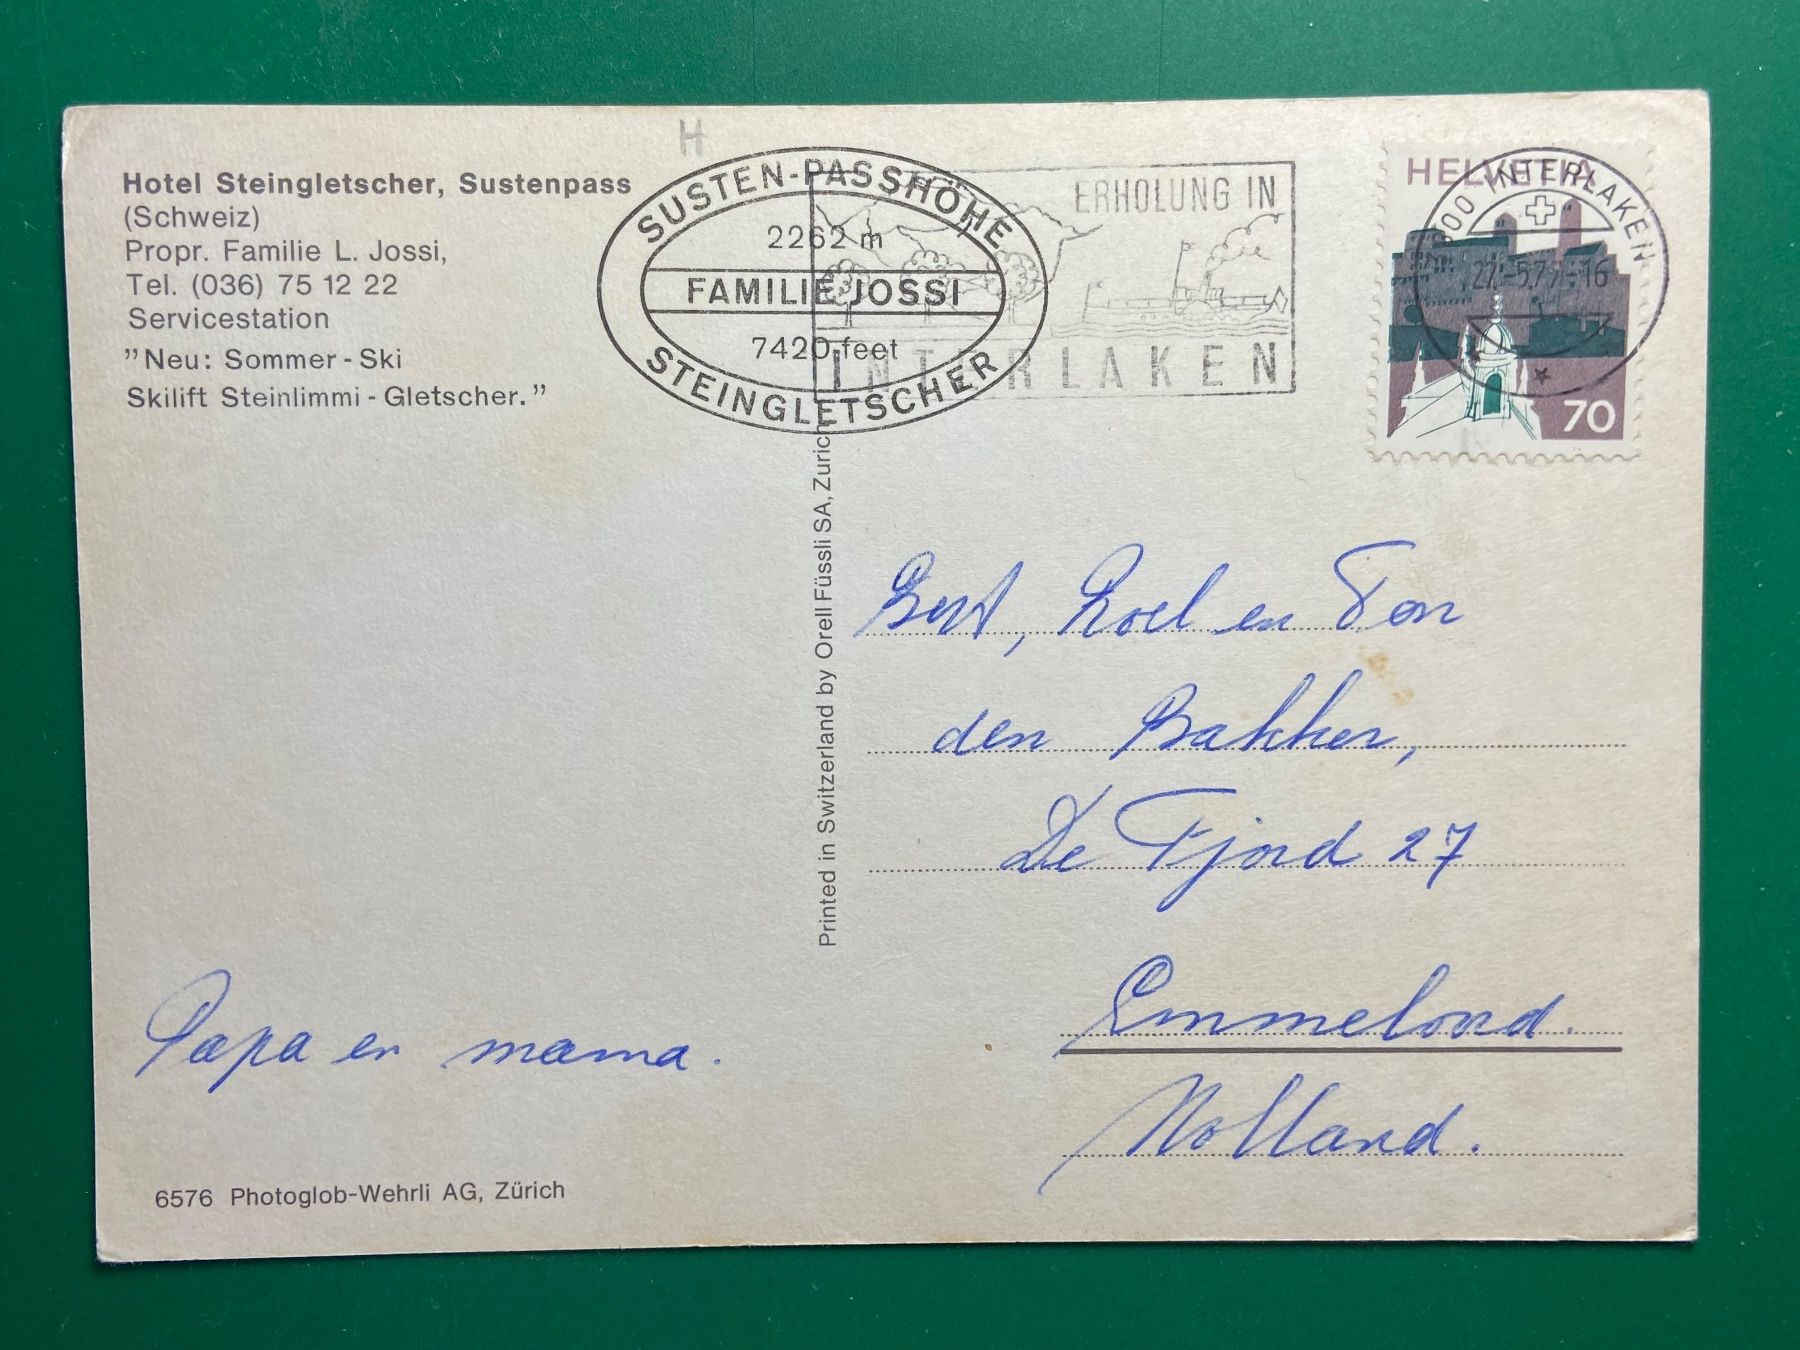 H
Hotel Steingletscher, Sustenpass
(Schweiz)
Propr. Familie L. Jossi,
Tel. (036) 75 12 22
Servicestation
"Neu: Sommer-Ski
Skilift Steinlimmi-Gletscher."
SUSTEN-PASSHÖHE
2262 m
FAMILIE JOSSI
7420 feet
STEINGLETSCHER
ERHOLUNG IN
INTERLAKEN
HELVETIA
INTERLAKEN
70
Printed in Switzerland by Orell Füssli SA, Zurich
Bert, Roel en Ton
den Bakker,
De Fjord 27
Emmeloord.
Holland.
Papa en mama.
6576 Photoglob-Wehrli AG, Zürich